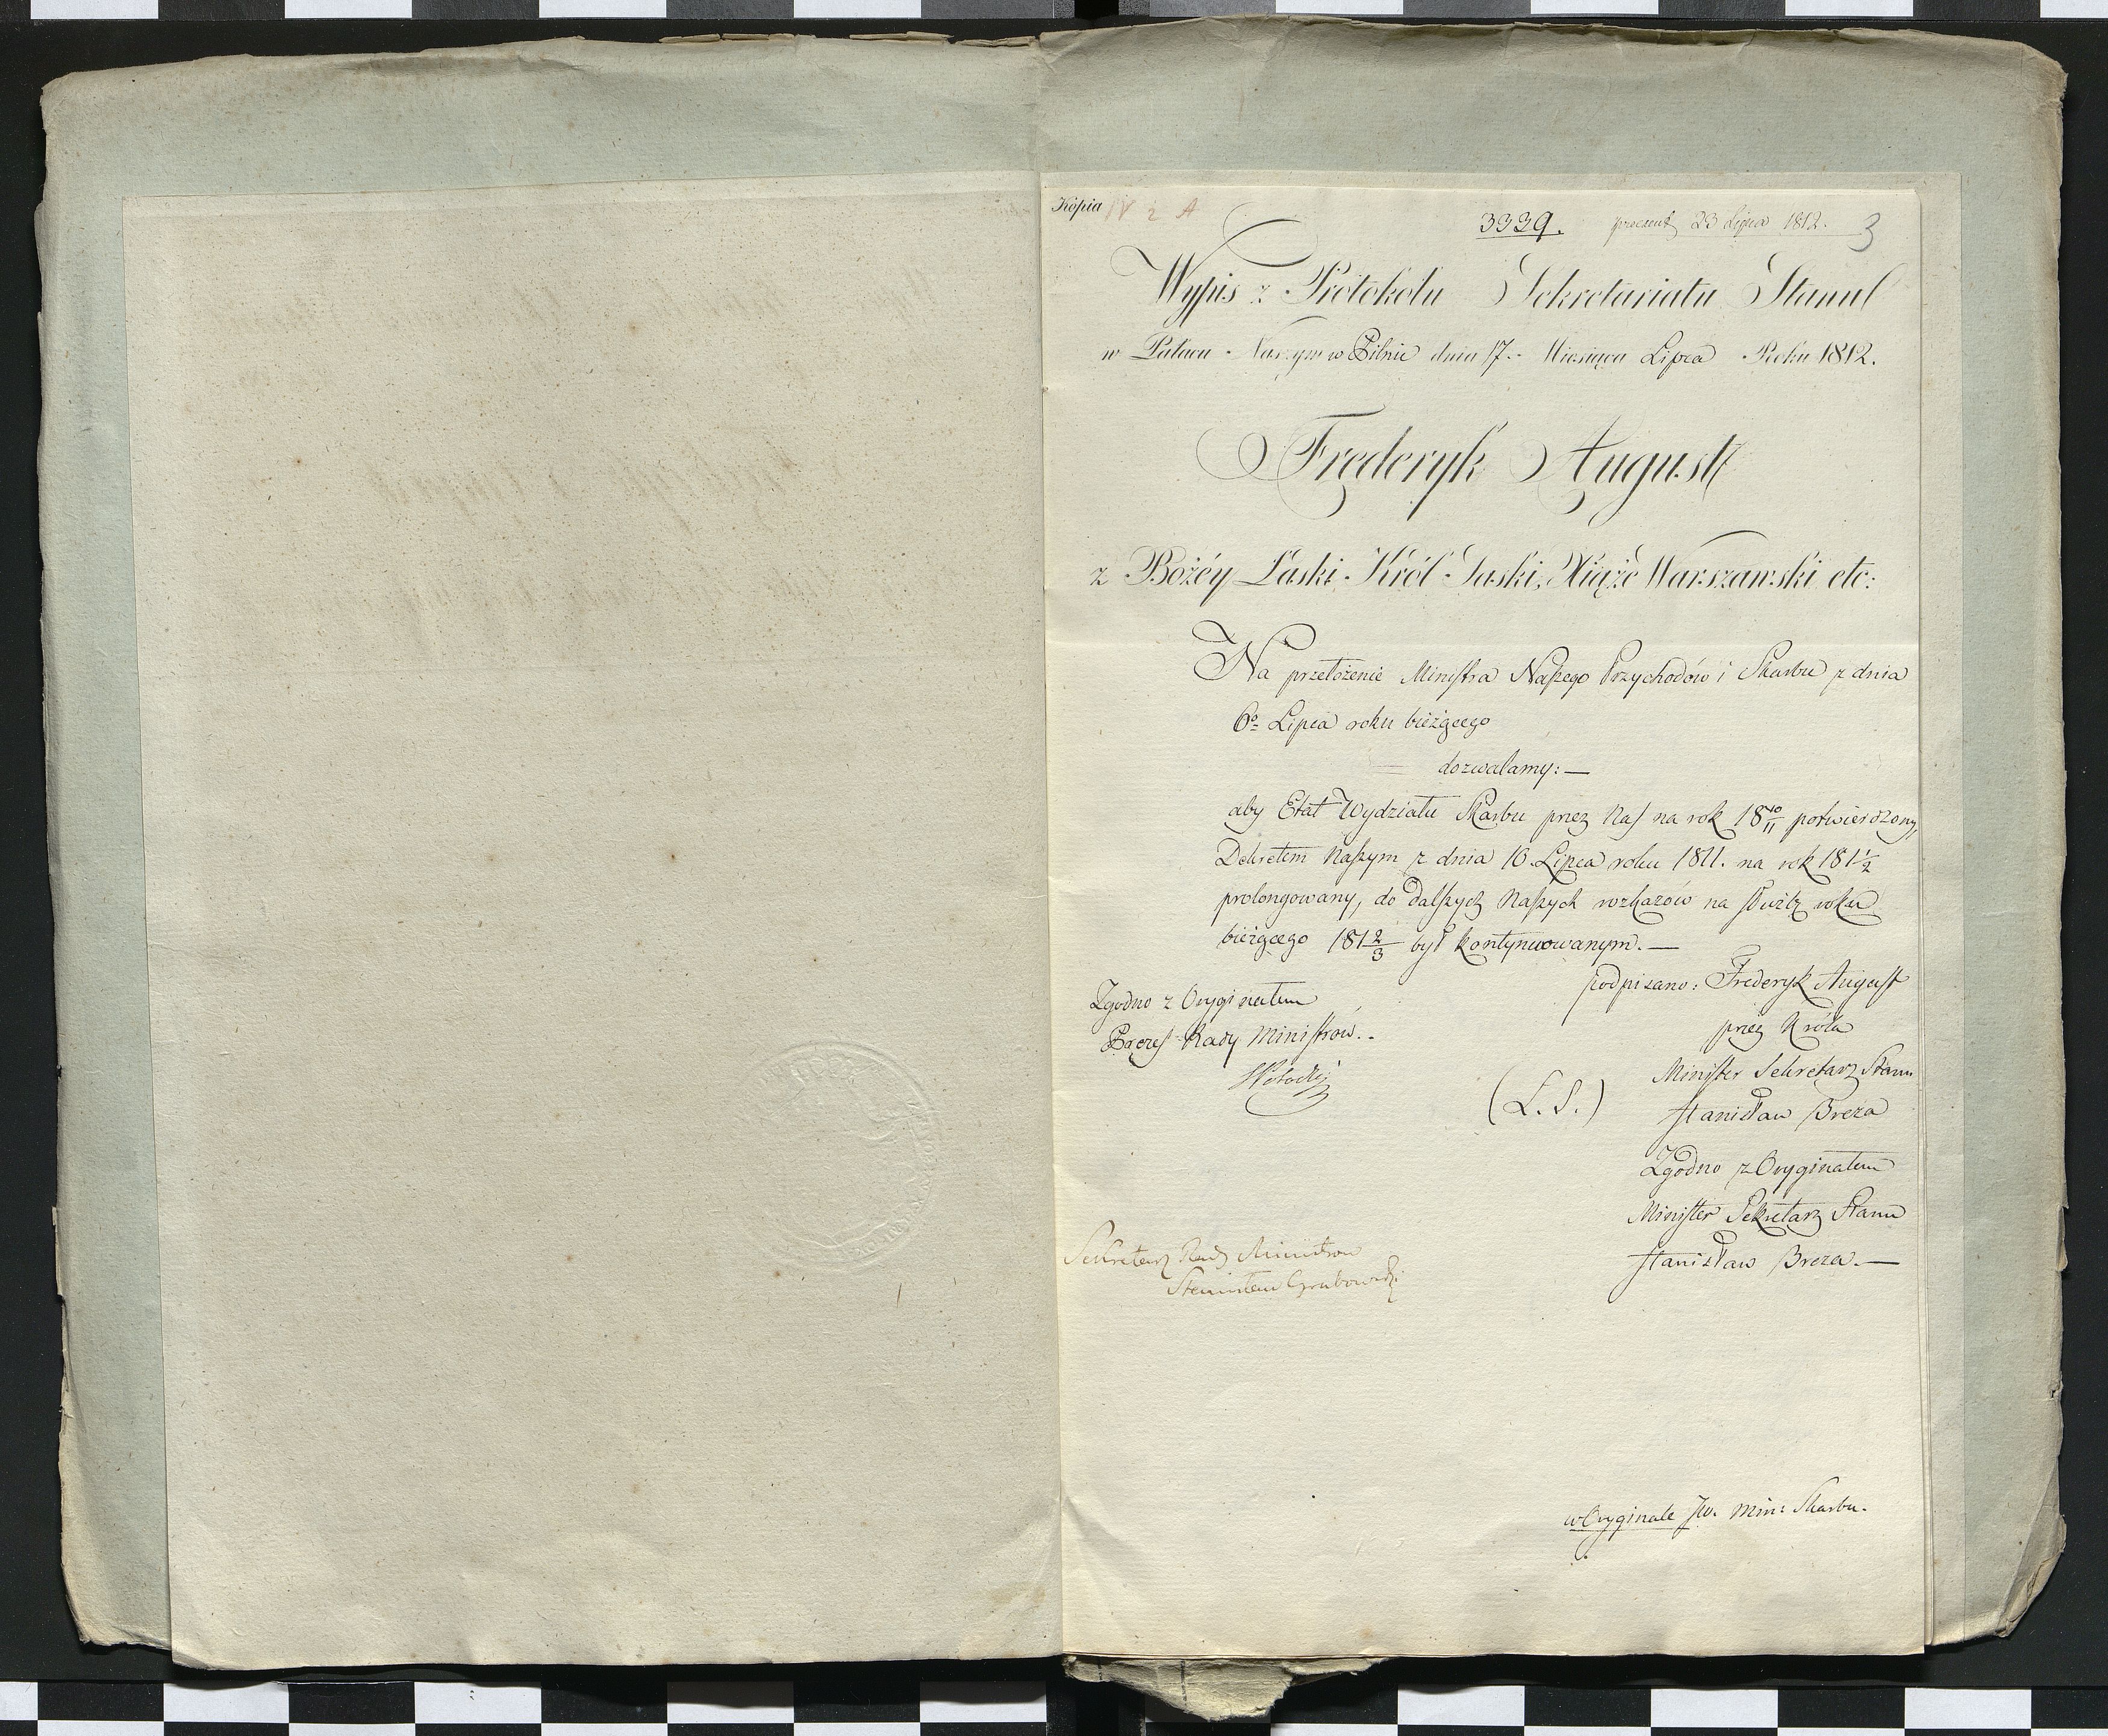 Kopia N 2 A
3339. praesent 23 Lipca 1812. 3
Wypis z Protokołu Sekretariatu Stanu
w Pałacu Naszym w Pilnie dnia 17. Miesiąca Lipca Roku 1812.
Fryderyk August
z Bożéy Łaski Król Saski, Xiąże Warszawski etc:
Na przełożenie Ministra Naszego Przychodów i Skarbu z dnia
6º Lipca roku bieżącego
dozwalamy: —
aby Etat Wydziału Skarbu przez Nas na rok 18 10/11 potwierdzony,
Dekretem Naszym z dnia 16. Lipca roku 1811. na rok 181 1/2
prolongowany, do dalszych Naszych rozkazów na służbę roku
bieżącego 181 2/3 był kontynuowanym. —
podpisano: Frederyk August
przez Króla
Minister Sekretarz Stanu
Stanisław Breza
(L. S.)
Zgodno z Oryginałem
Minister Sekretarz Stanu
Stanisław Breza. —
Zgodno z Oryginałem
Prezes Rady Ministrów.
SPotocki
Sekretarz Rady Ministrow
Stanisław Grabowski
w Oryginale Jw. Min: Skarbu.